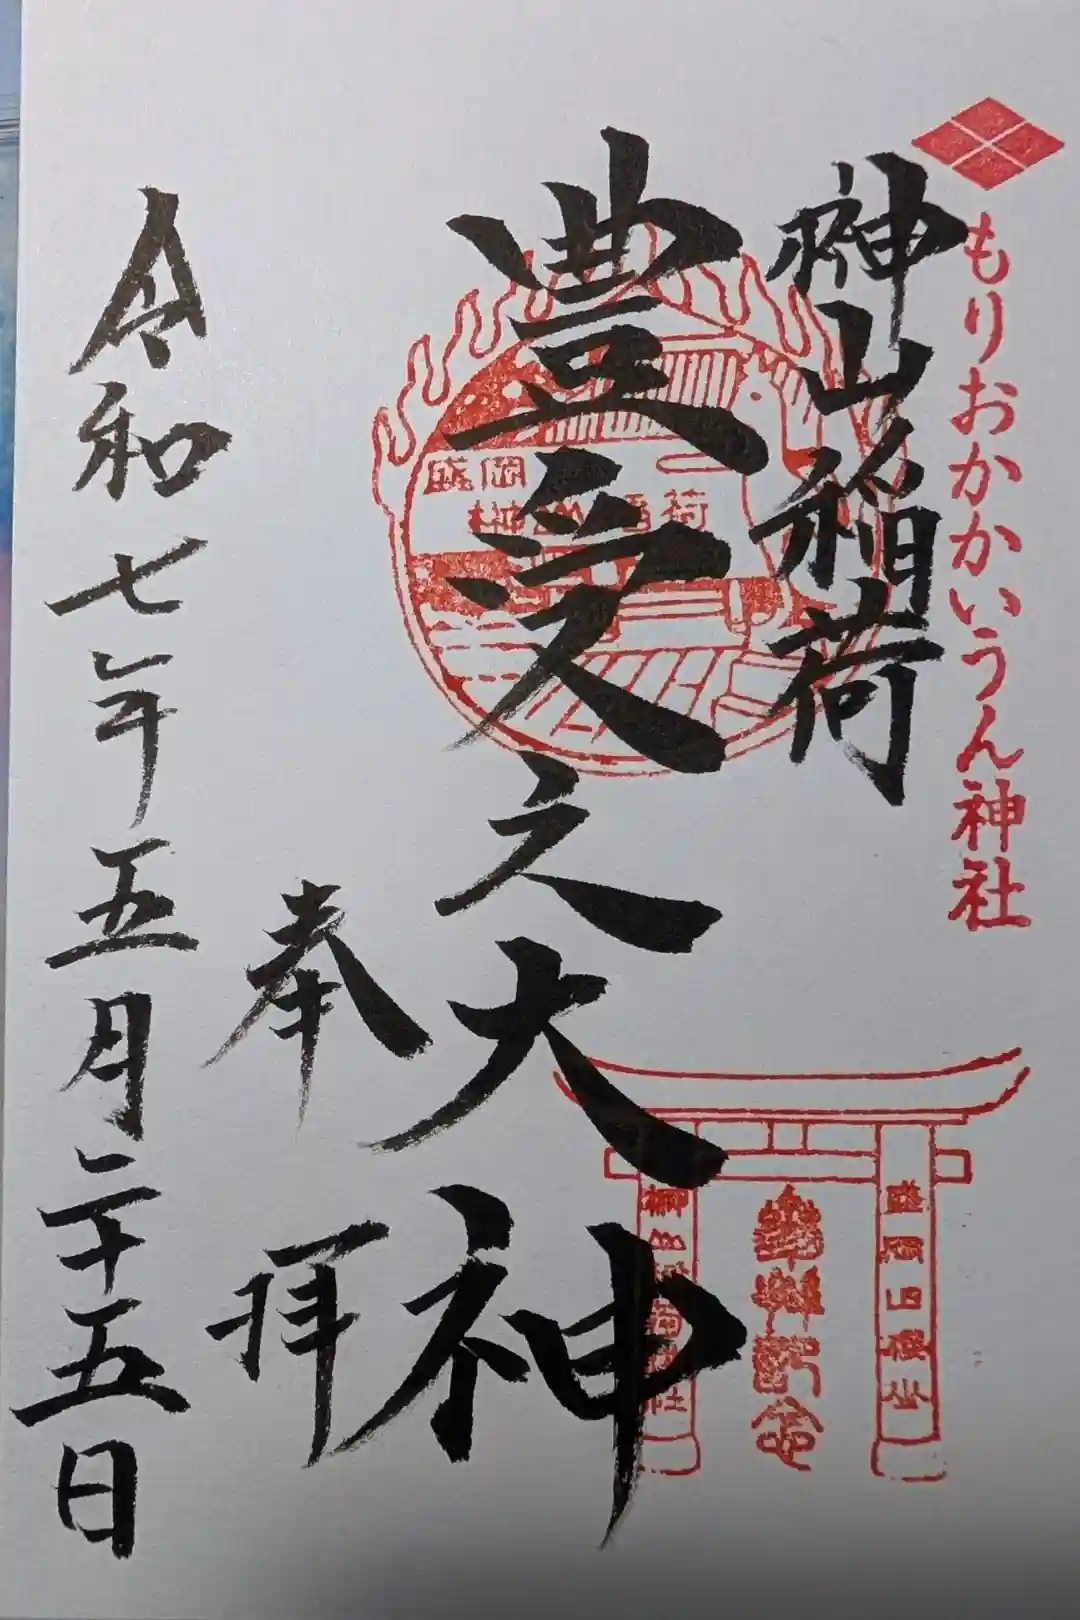 もりおかかいうん神社
榊山稲荷
豊受之大神
奉拝
令和七年五月二十五日
盛岡
榊山稲荷
参拝記念